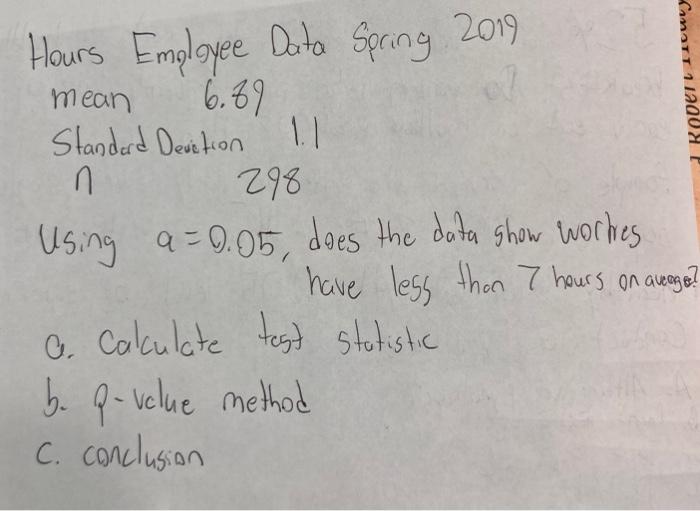 Hours Employee Data Spring 2019
mean 6.89
Standard Deviation 1.1
n 298
Using a = 0.05, does the data show workes
have less than 7 hours on average?
a. Calculate test statistic
b. P-value method
c. conclusion